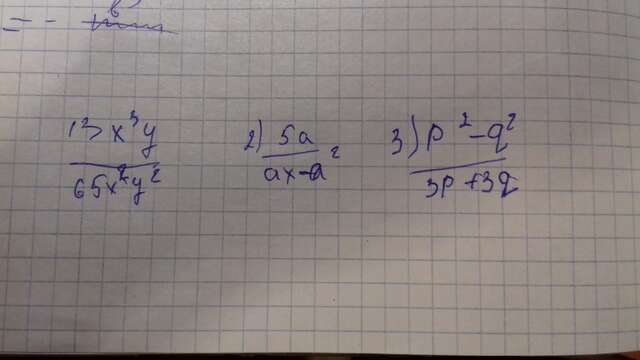 = -
13x³y / 65x²y² 2) 5a / ax-a² 3) p²-q² / 3p+3q